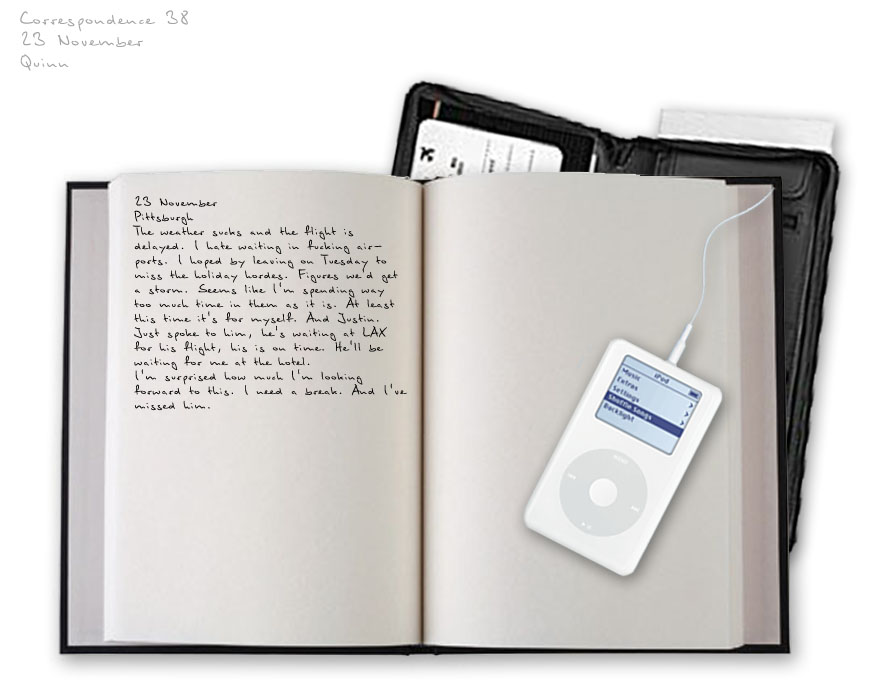 Correspondence 38
23 November
Quinn
23 November
Pittsburgh
The weather sucks and the flight is
delayed. I hate waiting in fucking air-
ports. I hoped by leaving on Tuesday to
miss the holiday hordes. Figures we'd get
a storm. Seems like I'm spending way
too much time in them as it is. At least
this time it's for myself. And Justin.
Just spoke to him, he's waiting at LAX
for his flight, his is on time. He'll be
waiting for me at the hotel.
I'm surprised how much I'm looking
forward to this. I need a break. And I've
missed him.
iPod
Music
Extras
Settings
Shuffle Songs
Backlight
MENU